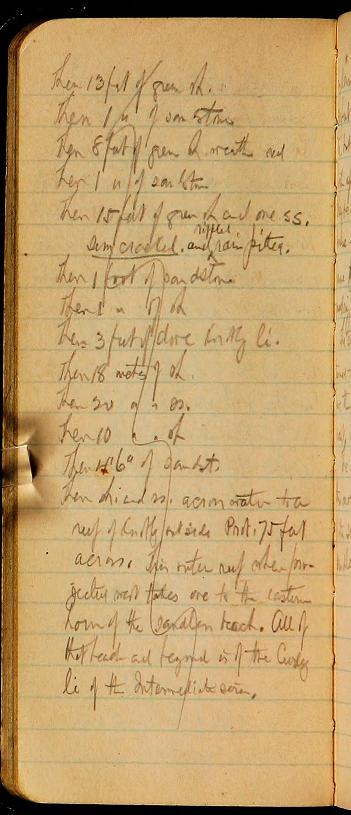 Then 13 feet of green sh.
Then 1 " of sandstone
Then 8 feet of green sh. weath red
Then 1 " of sandstone
Then 15 feet of green sh and one ss.
sun cracked. and rippled rain pitted.
Then 1 foot of sandstone
Then 1 " of sh
Then 3 feet of dove knotty li.
Then 18 meters of sh.
Then 20 " " ss.
Then 10 of sh
Then 1' 6" of sandst.
Then sh and ss. across water to a
reef of knotty Prob. 75 feet
across. This outer reef when
jected west takes one to the eastern
horn of the sandy beach. All of
that beach and beyond is of the
li of the Intermediate series.